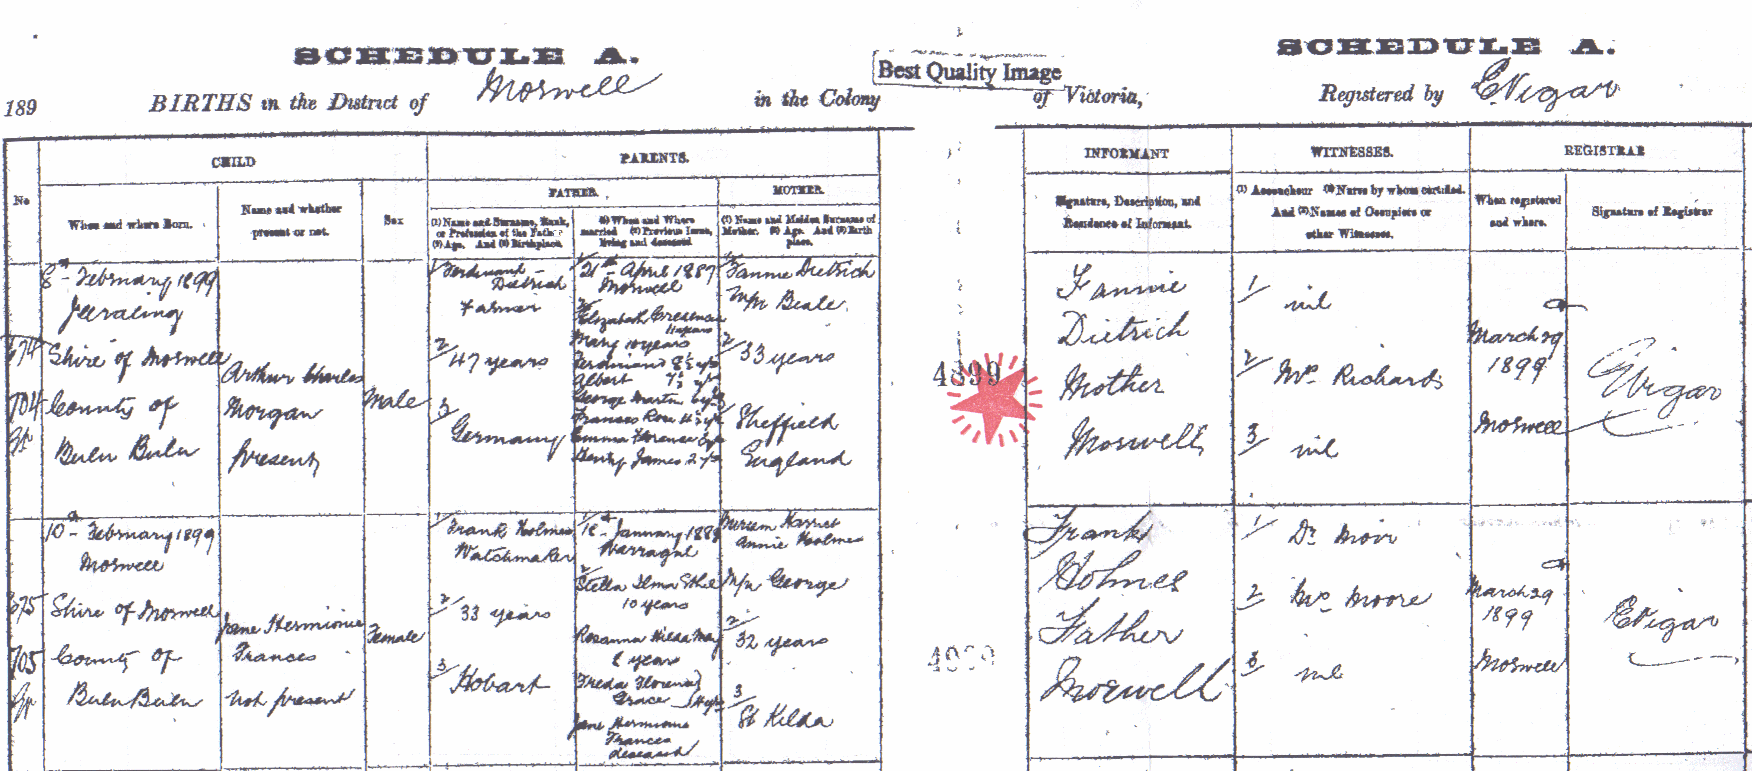 SCHEDULE A.
189 BIRTHS in the District of Morwell in the Colony
Best Quality Image
SCHEDULE A.
of Victoria, Registered by E Vigar
No
CHILD
When and where Born.
Name and whether
present or not.
Sex
PARENTS.
FATHER.
(1) Name and Surname, Rank,
or Profession of the Father
(2) Age. And (3) Birthplace.
(1) When and Where
married (2) Previous Issue,
living and deceased
MOTHER.
(1) Name and Maiden Surname of
Mother. (2) Age. And (3) Birth
place.
INFORMANT
Signature, Description, and
Residence of Informant.
WITNESSES.
(1) Accoucheur (2) Nurse by whom certified.
And (3) Names of Occupiers or
other Witnesses.
REGISTRAR
When registered
and where.
Signature of Registrar
674
704
8th February 1899
Jeeralang
Shire of Morwell
County of
Buln Buln
Arthur Charles
Morgan
present
Male
1/ Ferdinand
Dietrich
Farmer
2/ 47 years
3/ Germany
1/ 21st April 1887
Morwell
2/ Elizabeth
11 years
Mary 10 years
Ferdinand 8½ yrs
Albert 7½ yrs
George Martin 6 yrs
Frances Rose 4½ yrs
Emma Florence 3 yrs
Henry James 2 yrs
1/ Fannie Dietrich
M/n Beale
2/ 33 years
3/ Sheffield
England
4899
Fannie
Dietrich
Mother
Morwell
1/ nil
2/ Mrs Richards
3/ nil
March 29
1899
Morwell
E Vigar
675
705
10th February 1899
Morwell
Shire of Morwell
County of
Buln Buln
Jane Hermionie
Frances
not present
Female
1/ Frank Holmes
Watchmaker
2/ 33 years
3/ Hobart
1/ 18th January 1888
Warragul
2/ Stella Ilma Ethel
10 years
Rosanna Hilda May
8 year
Freda Florence
Grace
Jane Hermione
Frances
deceased
Miriam Harriet
Annie Holmes
M/n George
2/ 32 years
3/ St Kilda
Frank
Holmes
Father
Morwell
1/ Dr Moor
2/ Mrs Moore
3/ nil
March 29
1899
Morwell
E Vigar